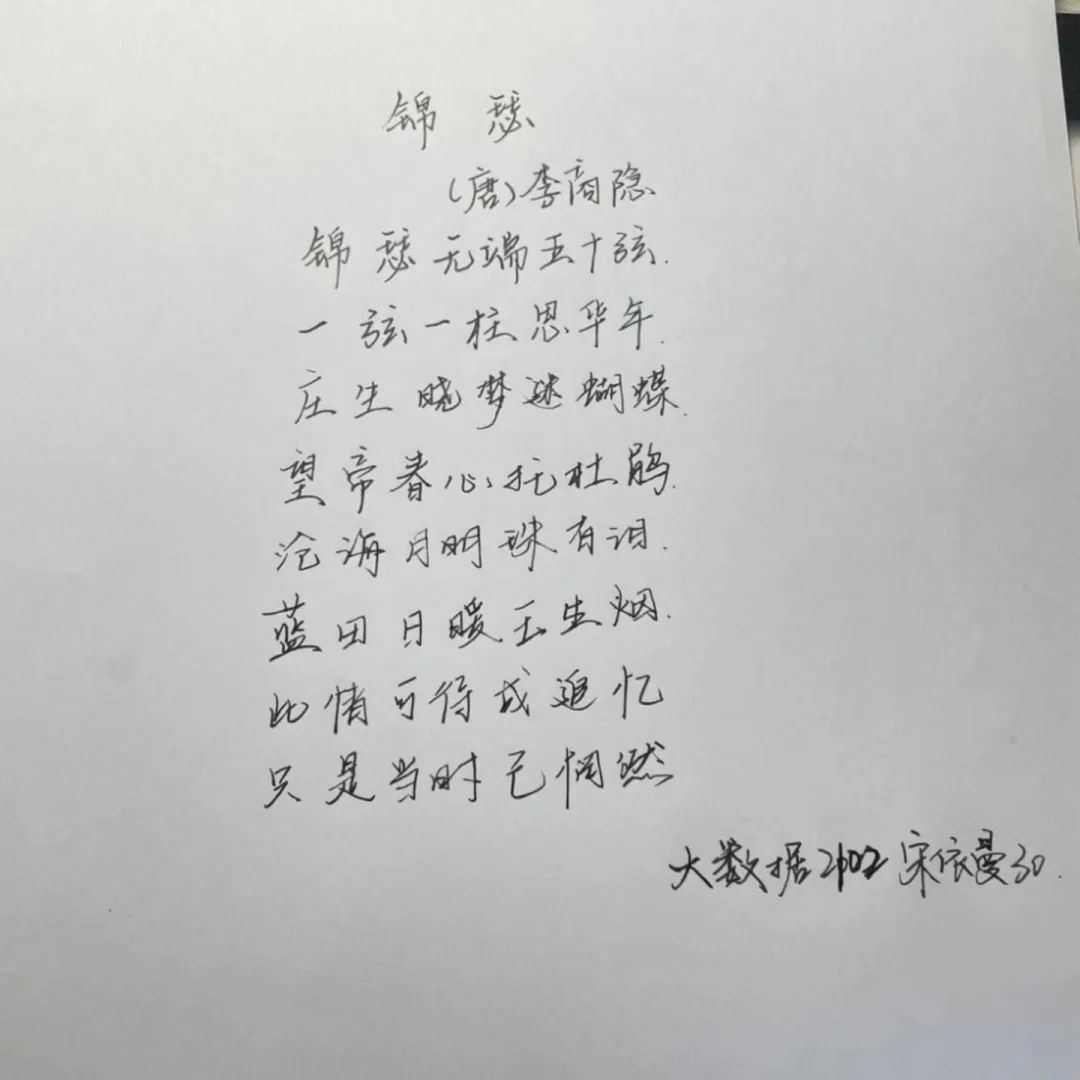 锦 瑟
(唐)李商隐
锦瑟无端五十弦.
一弦一柱思华年.
庄生晓梦迷蝴蝶.
望帝春心托杜鹃.
沧海月明珠有泪.
蓝田日暖玉生烟.
此情可待成追忆
只是当时已惘然
大数据2102 宋依曼30.